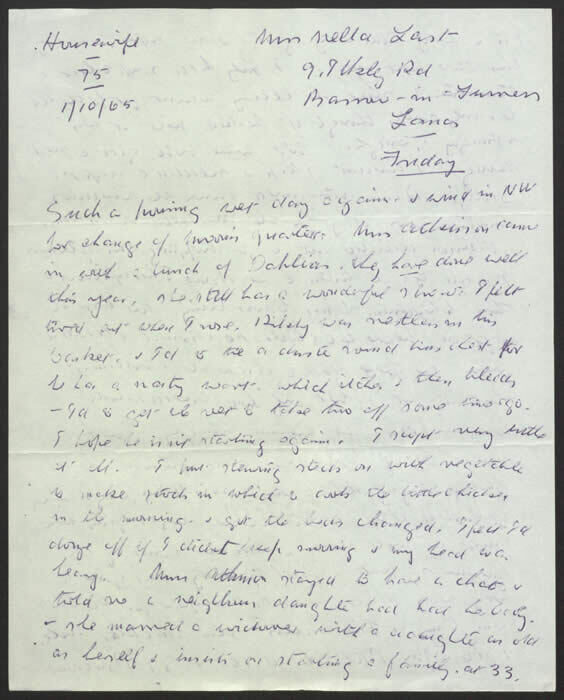 Housewife
75
1/10/65
Mrs Nella Last
9. Ilkley Rd
Barrow-in-Furness
Lancs
Friday
Such a pouring wet day again & wind in NW
for change of moon's quarter. Mrs Atkinson came
in with a bunch of Dahlias. they have done well
this year, she still has a wonderful show. I felt
tired out when I rose. was restless in his
basket, & I'd to tie a duster round his chest for
he has a nasty wart. which itches & then bleeds
- I'd to get the vet to take two off some time ago.
I hope he isn't starting again. I slept very little
I put stewing steak on with vegetable
to make stock in which to cook the little chicken
in the morning. & got the beds changed. I felt I'd
doze off if I didn't keep moving & my head was
heavy. Mrs Atkinson stayed to have a chat. &
told me a neighbours daughter had had he baby.
- she married a widower with a daughter as old
as herself & insists on starting a family. at 33.